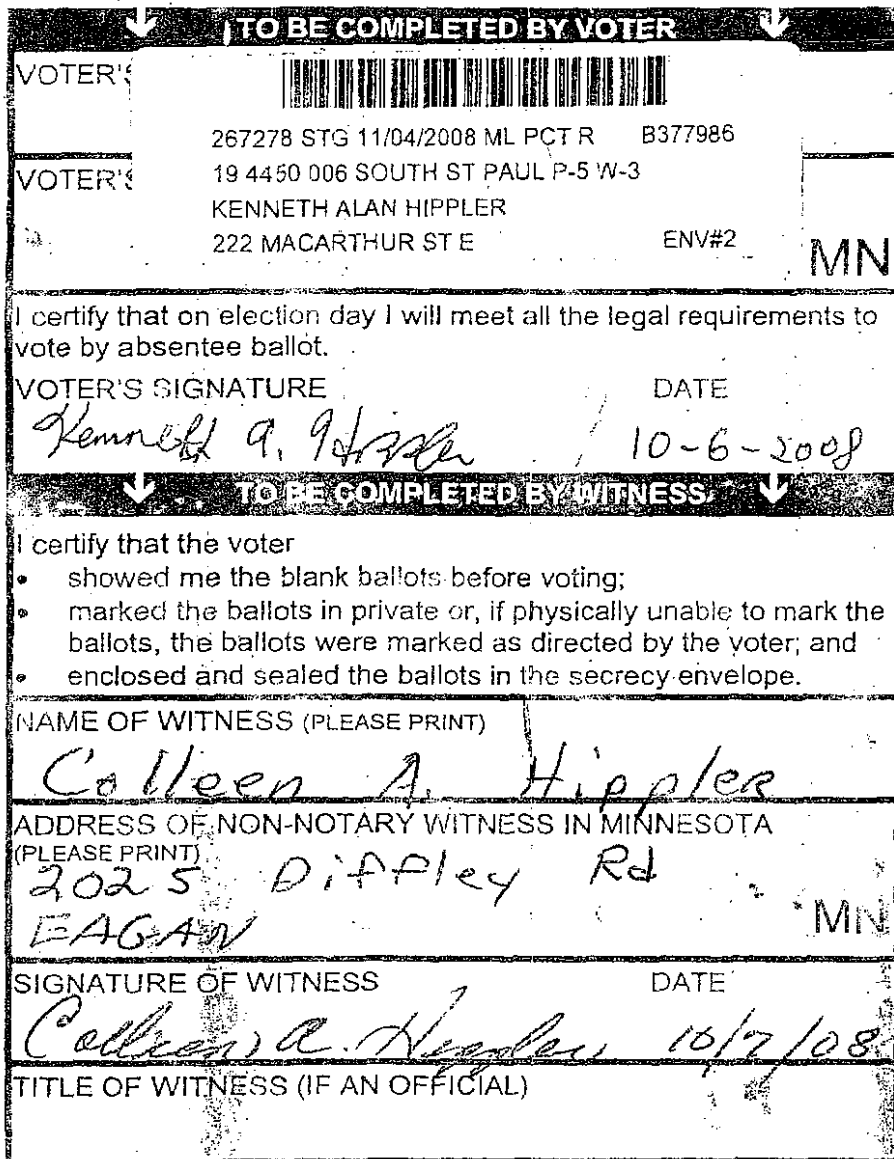 TO BE COMPLETED BY VOTER
VOTER'S
267278 STG 11/04/2008 ML PCT R B377986
VOTER'S
19 4450 006 SOUTH ST PAUL P-5 W-3
KENNETH ALAN HIPPLER
222 MACARTHUR ST E ENV#2
MN
I certify that on election day I will meet all the legal requirements to
vote by absentee ballot.
VOTER'S SIGNATURE DATE
Kenneth A. Hippler 10-6-2008
TO BE COMPLETED BY WITNESS
I certify that the voter
• showed me the blank ballots before voting;
• marked the ballots in private or, if physically unable to mark the
ballots, the ballots were marked as directed by the voter; and
• enclosed and sealed the ballots in the secrecy envelope.
NAME OF WITNESS (PLEASE PRINT)
Colleen A. Hippler
ADDRESS OF NON-NOTARY WITNESS IN MINNESOTA
(PLEASE PRINT)
2025 Diffley Rd
EAGAN MN
SIGNATURE OF WITNESS DATE
Colleen A. Hippler 10/7/08
TITLE OF WITNESS (IF AN OFFICIAL)